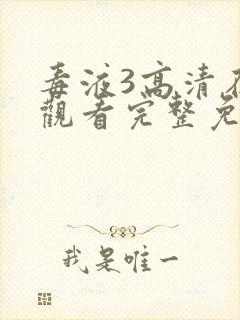 毒液3高清
觀看完整免
我是唯一